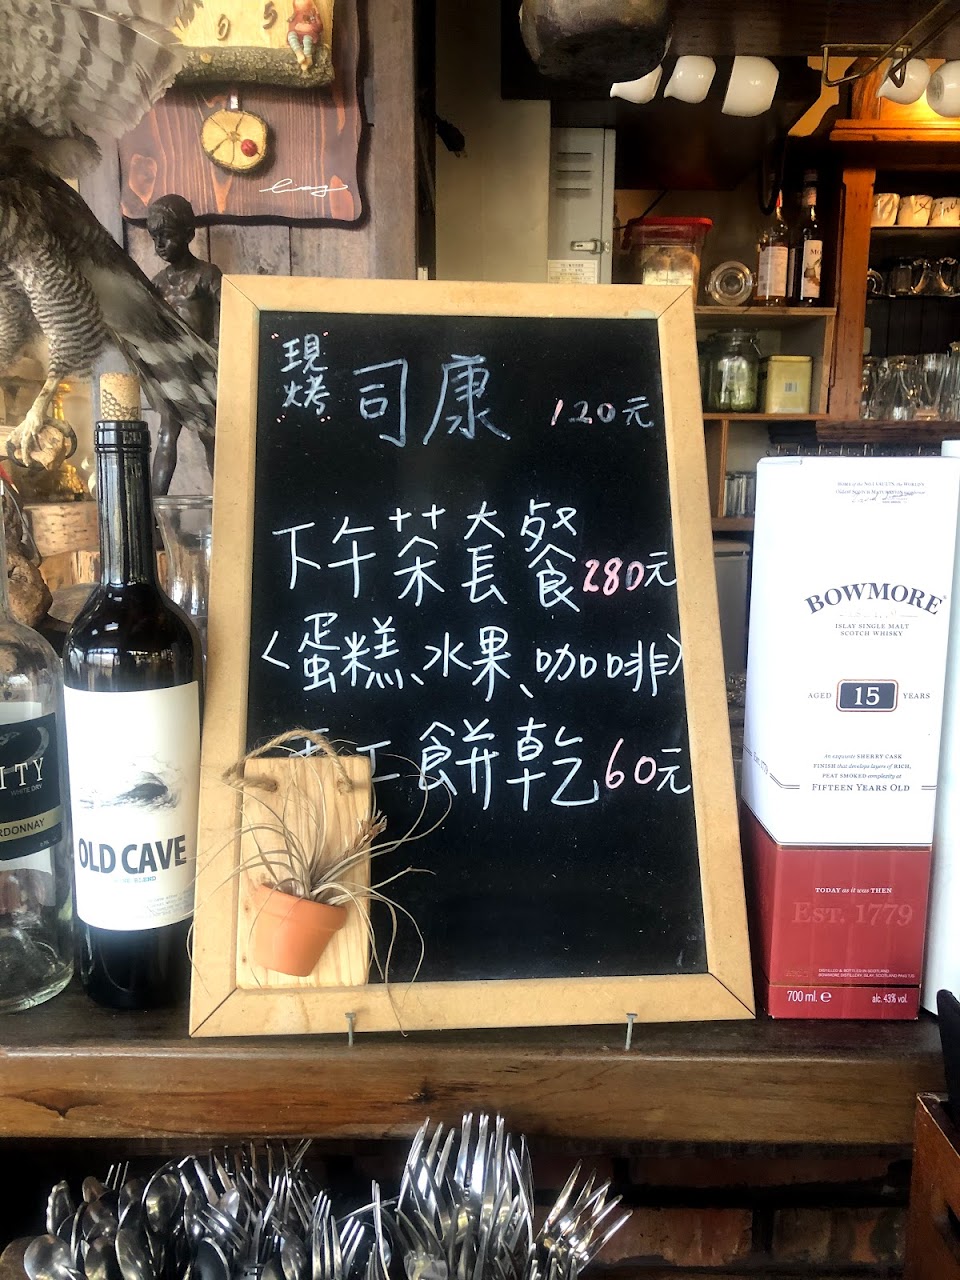 現烤 司康 120元
下午茶套餐 280元
〈蛋糕、水果、咖啡〉
手工餅乾 60元
ITY
WHITE DRY
RDONNAY
OLD CAVE
BOWMORE
ISLAY SINGLE MALT
SCOTCH WHISKY
AGED 15 YEARS
An exquisite SHERRY CASK
FINISH that develops layers of RICH,
PEAT SMOKED complexity at
FIFTEEN YEARS OLD
TODAY as it was THEN
EST. 1779
DISTILLED & BOTTLED IN SCOTLAND
700 ml. e alc. 43% vol.